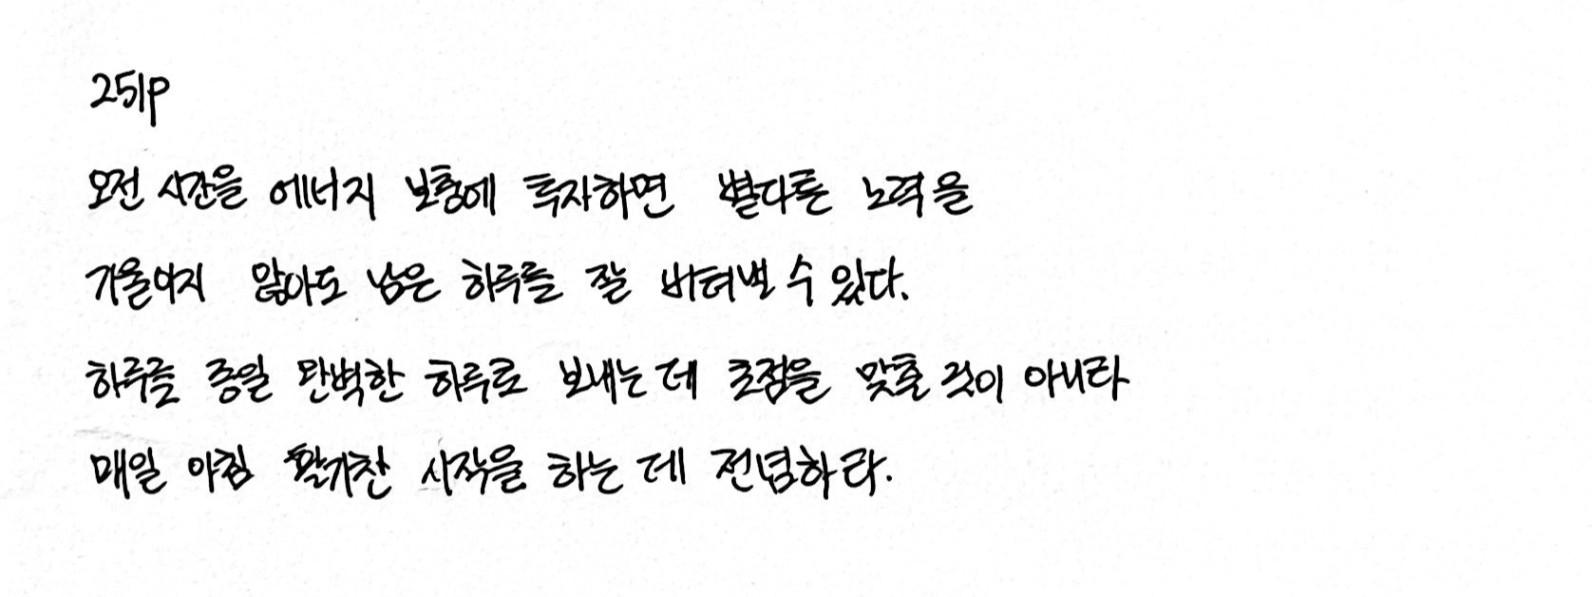 251p
오전 시간을 에너지 보충에 투자하면 별다른 노력을
기울이지 않아도 남은 하루를 잘 버텨낼 수 있다.
하루를 종일 완벽한 하루로 보내는 데 초점을 맞출 것이 아니라
매일 아침 활기찬 시작을 하는 데 전념하라.